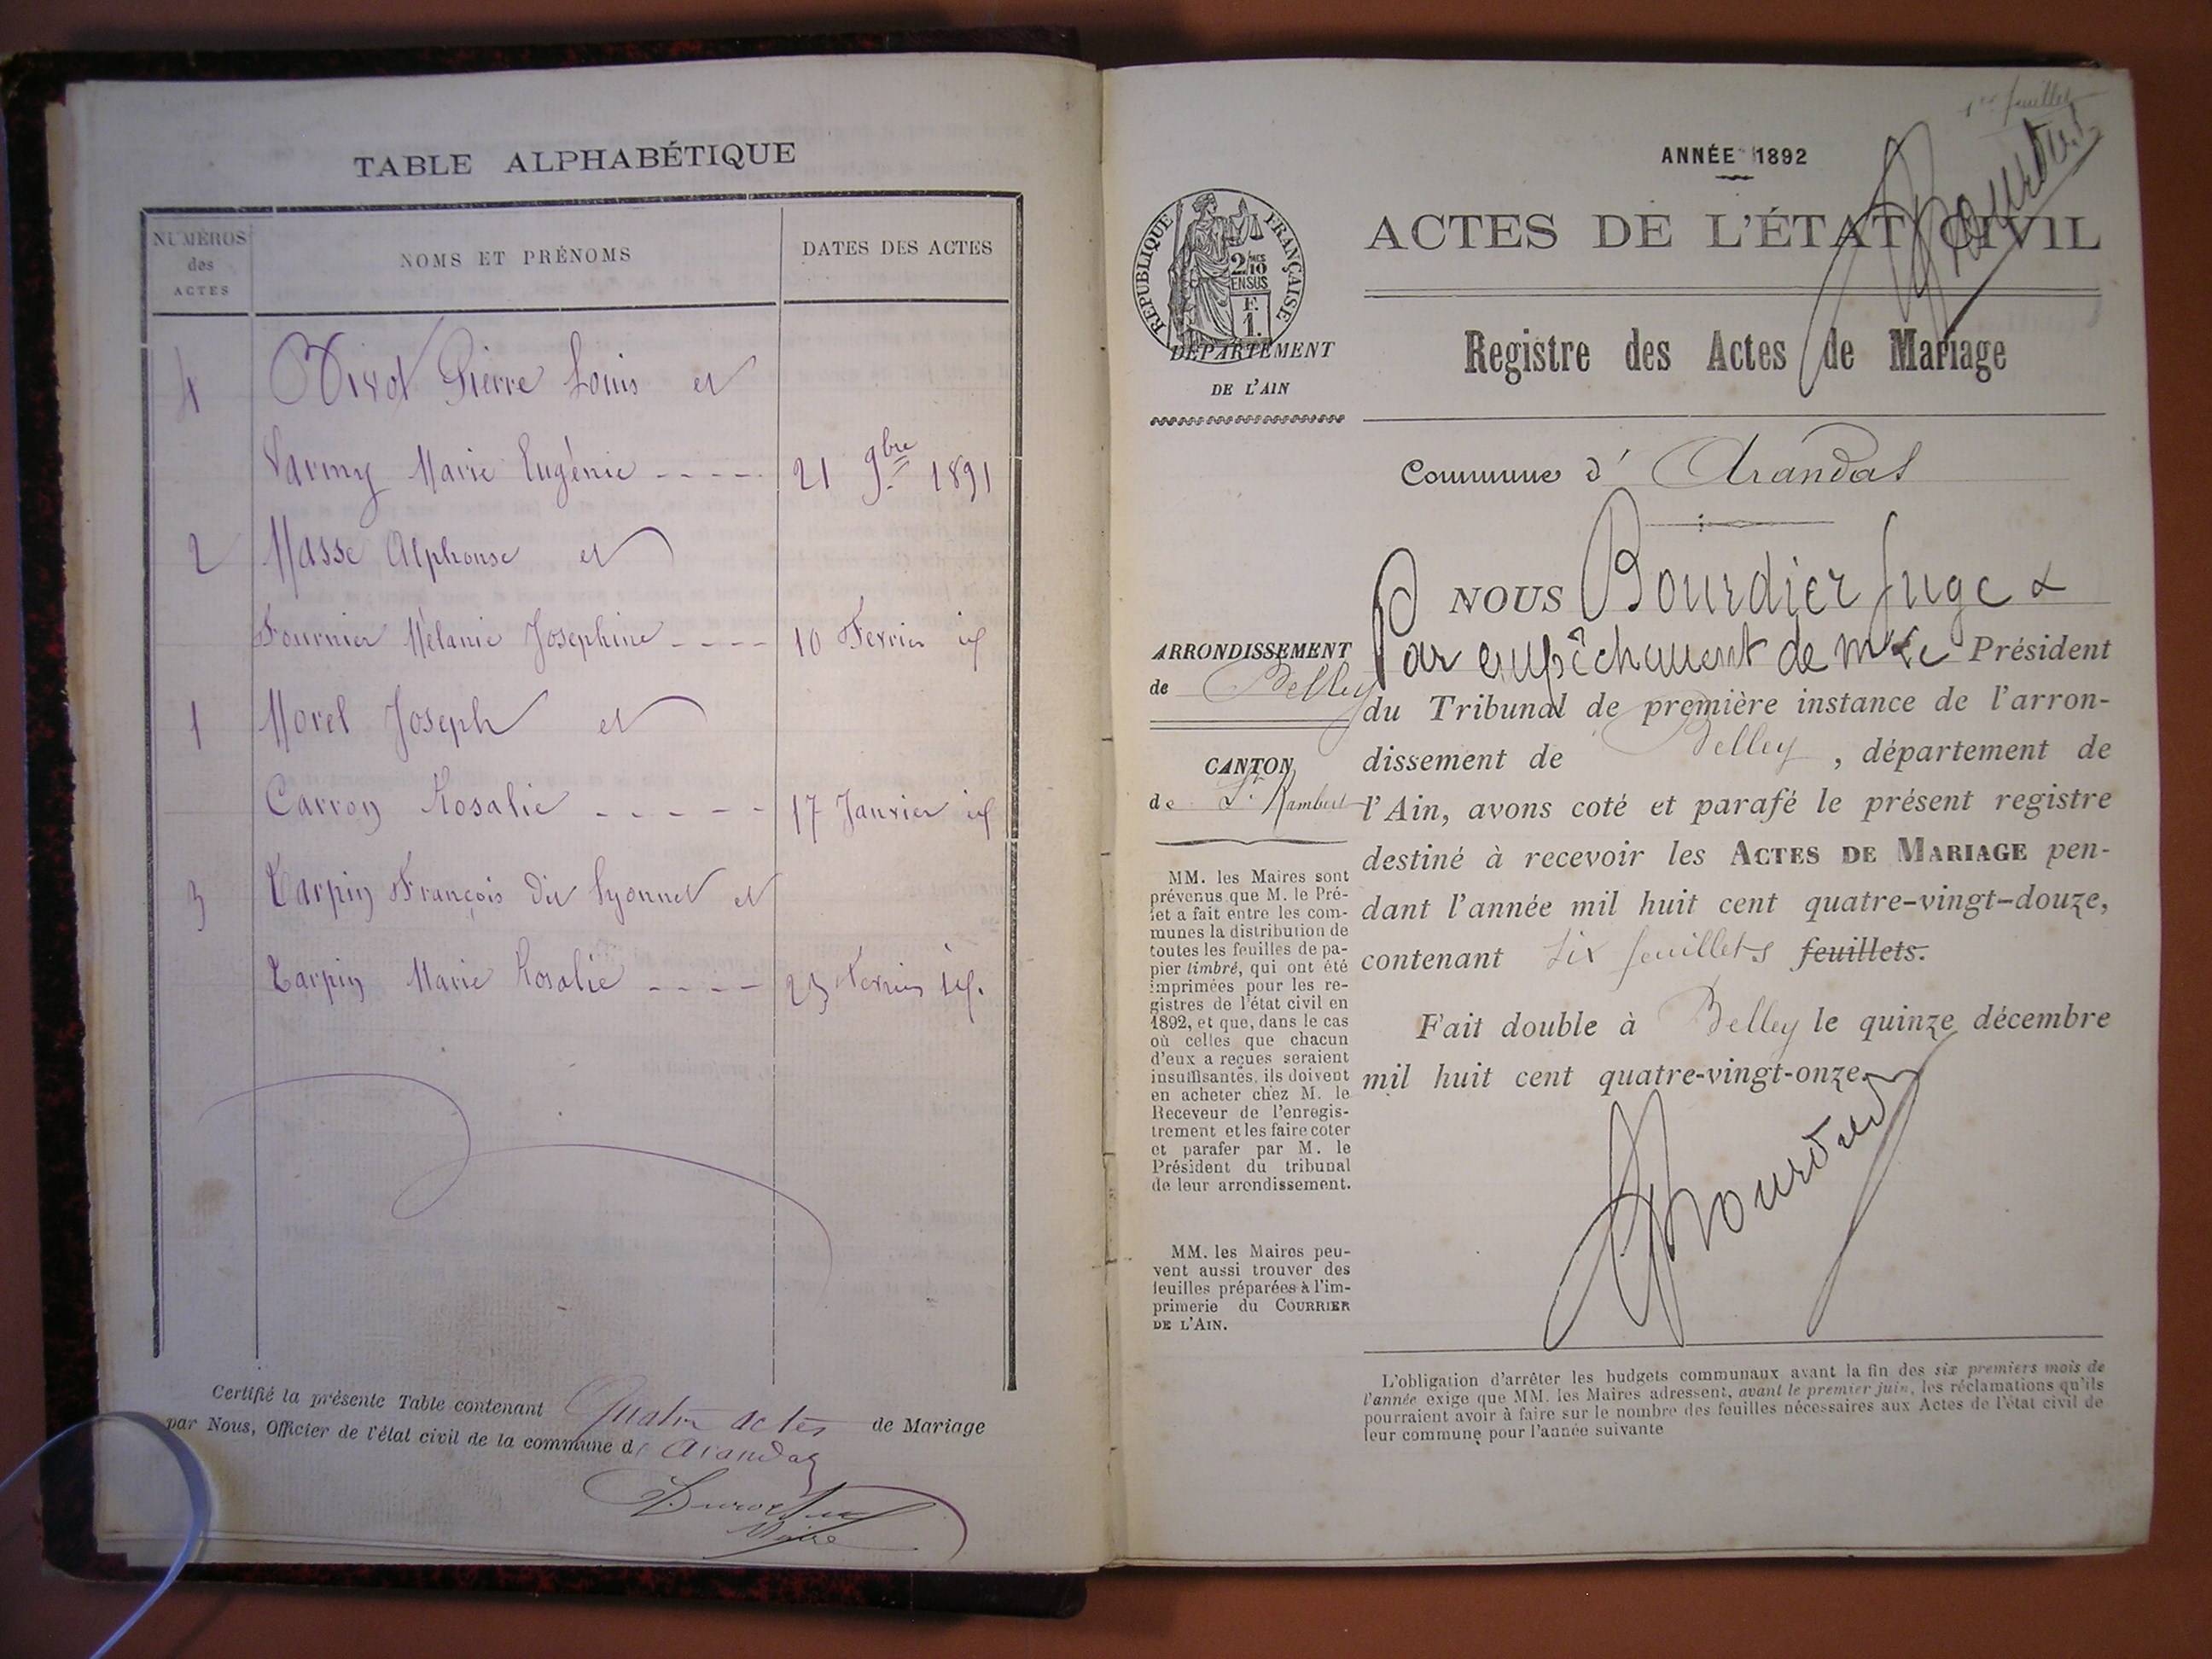 TABLE ALPHABÉTIQUE
NUMÉROS
des
ACTES
NOMS ET PRÉNOMS
DATES DES ACTES
4
Pierre Louis et
Varmy Marie Eugénie - - - - 21 9bre 1891
2 Masse Alphonse et
Fournier Mélanie Josephine - - - - 10 Fevrier id
1 Morel Joseph et
Carron Rosalie - - - - - 17 Janvier id
3 Tarpin François dit Lyonnet et
Tarpin Marie Rosalie - - - - 23 Fevrier id.
Certifié la présente Table contenant Quatre actes de Mariage
par Nous, Officier de l'état civil de la commune d' Arandas
Maire
1er feuillet
Bourdier
ANNÉE 1892
ACTES DE L'ÉTAT CIVIL
Registre des Actes de Mariage
RÉPUBLIQUE FRANÇAISE
2/10MES
EN SUS
F.
1.
DÉPARTEMENT
DE L'AIN
Commune d' Arandas
ARRONDISSEMENT
de Belley
CANTON
de St Rambert
MM. les Maires sont
prévenus que M. le Pré-
fet a fait entre les com-
munes la distribution de
toutes les feuilles de pa-
pier timbré, qui ont été
imprimées pour les re-
gistres de l'état civil en
1892, et que, dans le cas
où celles que chacun
d'eux a reçues seraient
insuffisantes, ils doivent
en acheter chez M. le
Receveur de l'enregis-
trement et les faire coter
et parafer par M. le
Président du tribunal
de leur arrondissement.
MM. les Maires peu-
vent aussi trouver des
feuilles préparées à l'im-
primerie du COURRIER
DE L'AIN.
NOUS Bourdier Juge
Par empêchement de Mr le Président
du Tribunal de première instance de l'arron-
dissement de Belley, département de
l'Ain, avons coté et parafé le présent registre
destiné à recevoir les ACTES DE MARIAGE pen-
dant l'année mil huit cent quatre-vingt-douze,
contenant six feuillets feuillets.
Fait double à Belley le quinze décembre
mil huit cent quatre-vingt-onze.
Bourdier
L'obligation d'arrêter les budgets communaux avant la fin des six premiers mois de
l'année exige que MM. les Maires adressent, avant le premier juin, les réclamations qu'ils
pourraient avoir à faire sur le nombre des feuilles nécessaires aux Actes de l'état civil de
leur commune pour l'année suivante